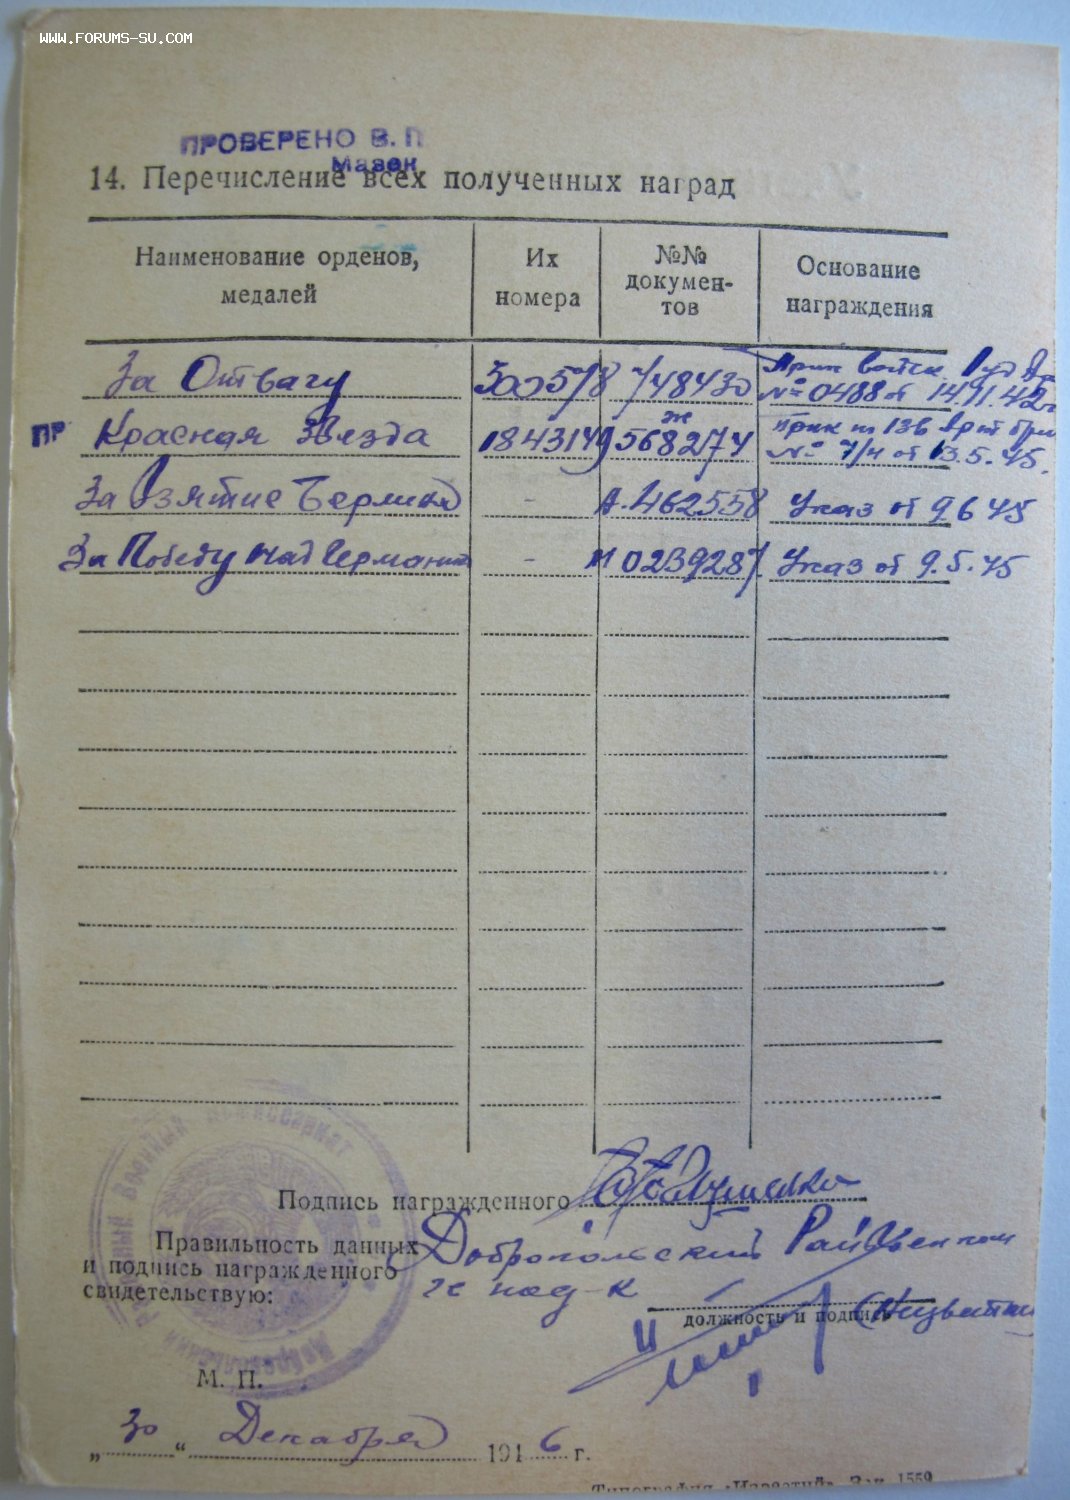 WWW.FORUMS-SU.COM
ПРОВЕРЕНО В. П
Мазек
14. Перечисление всех полученных наград
Наименование орденов, медалей
Их номера
№№ докумен-тов
Основание награждения
За Отвагу 500578 748430 Прик войск
№ 0488 от 14.11.42г
ПР Красная Звезда 1843149 ж 568274 Прик по 136 Арт бри
№ 7/н от 13.5.45.
За Взятие Берлина - А.462558 Указ от 9 6 45
За Победу над Германией - М 0239287 Указ от 9.5.45
Подпись награжденного
Правильность данных Добропольский Райвоенком
и подпись награжденного
свидетельствую:
должность и подпись
Районный Военный Комиссариат
М. П.
„ 30 “ Декабря 1946 г.
Типография «Известий» Зак. 1559